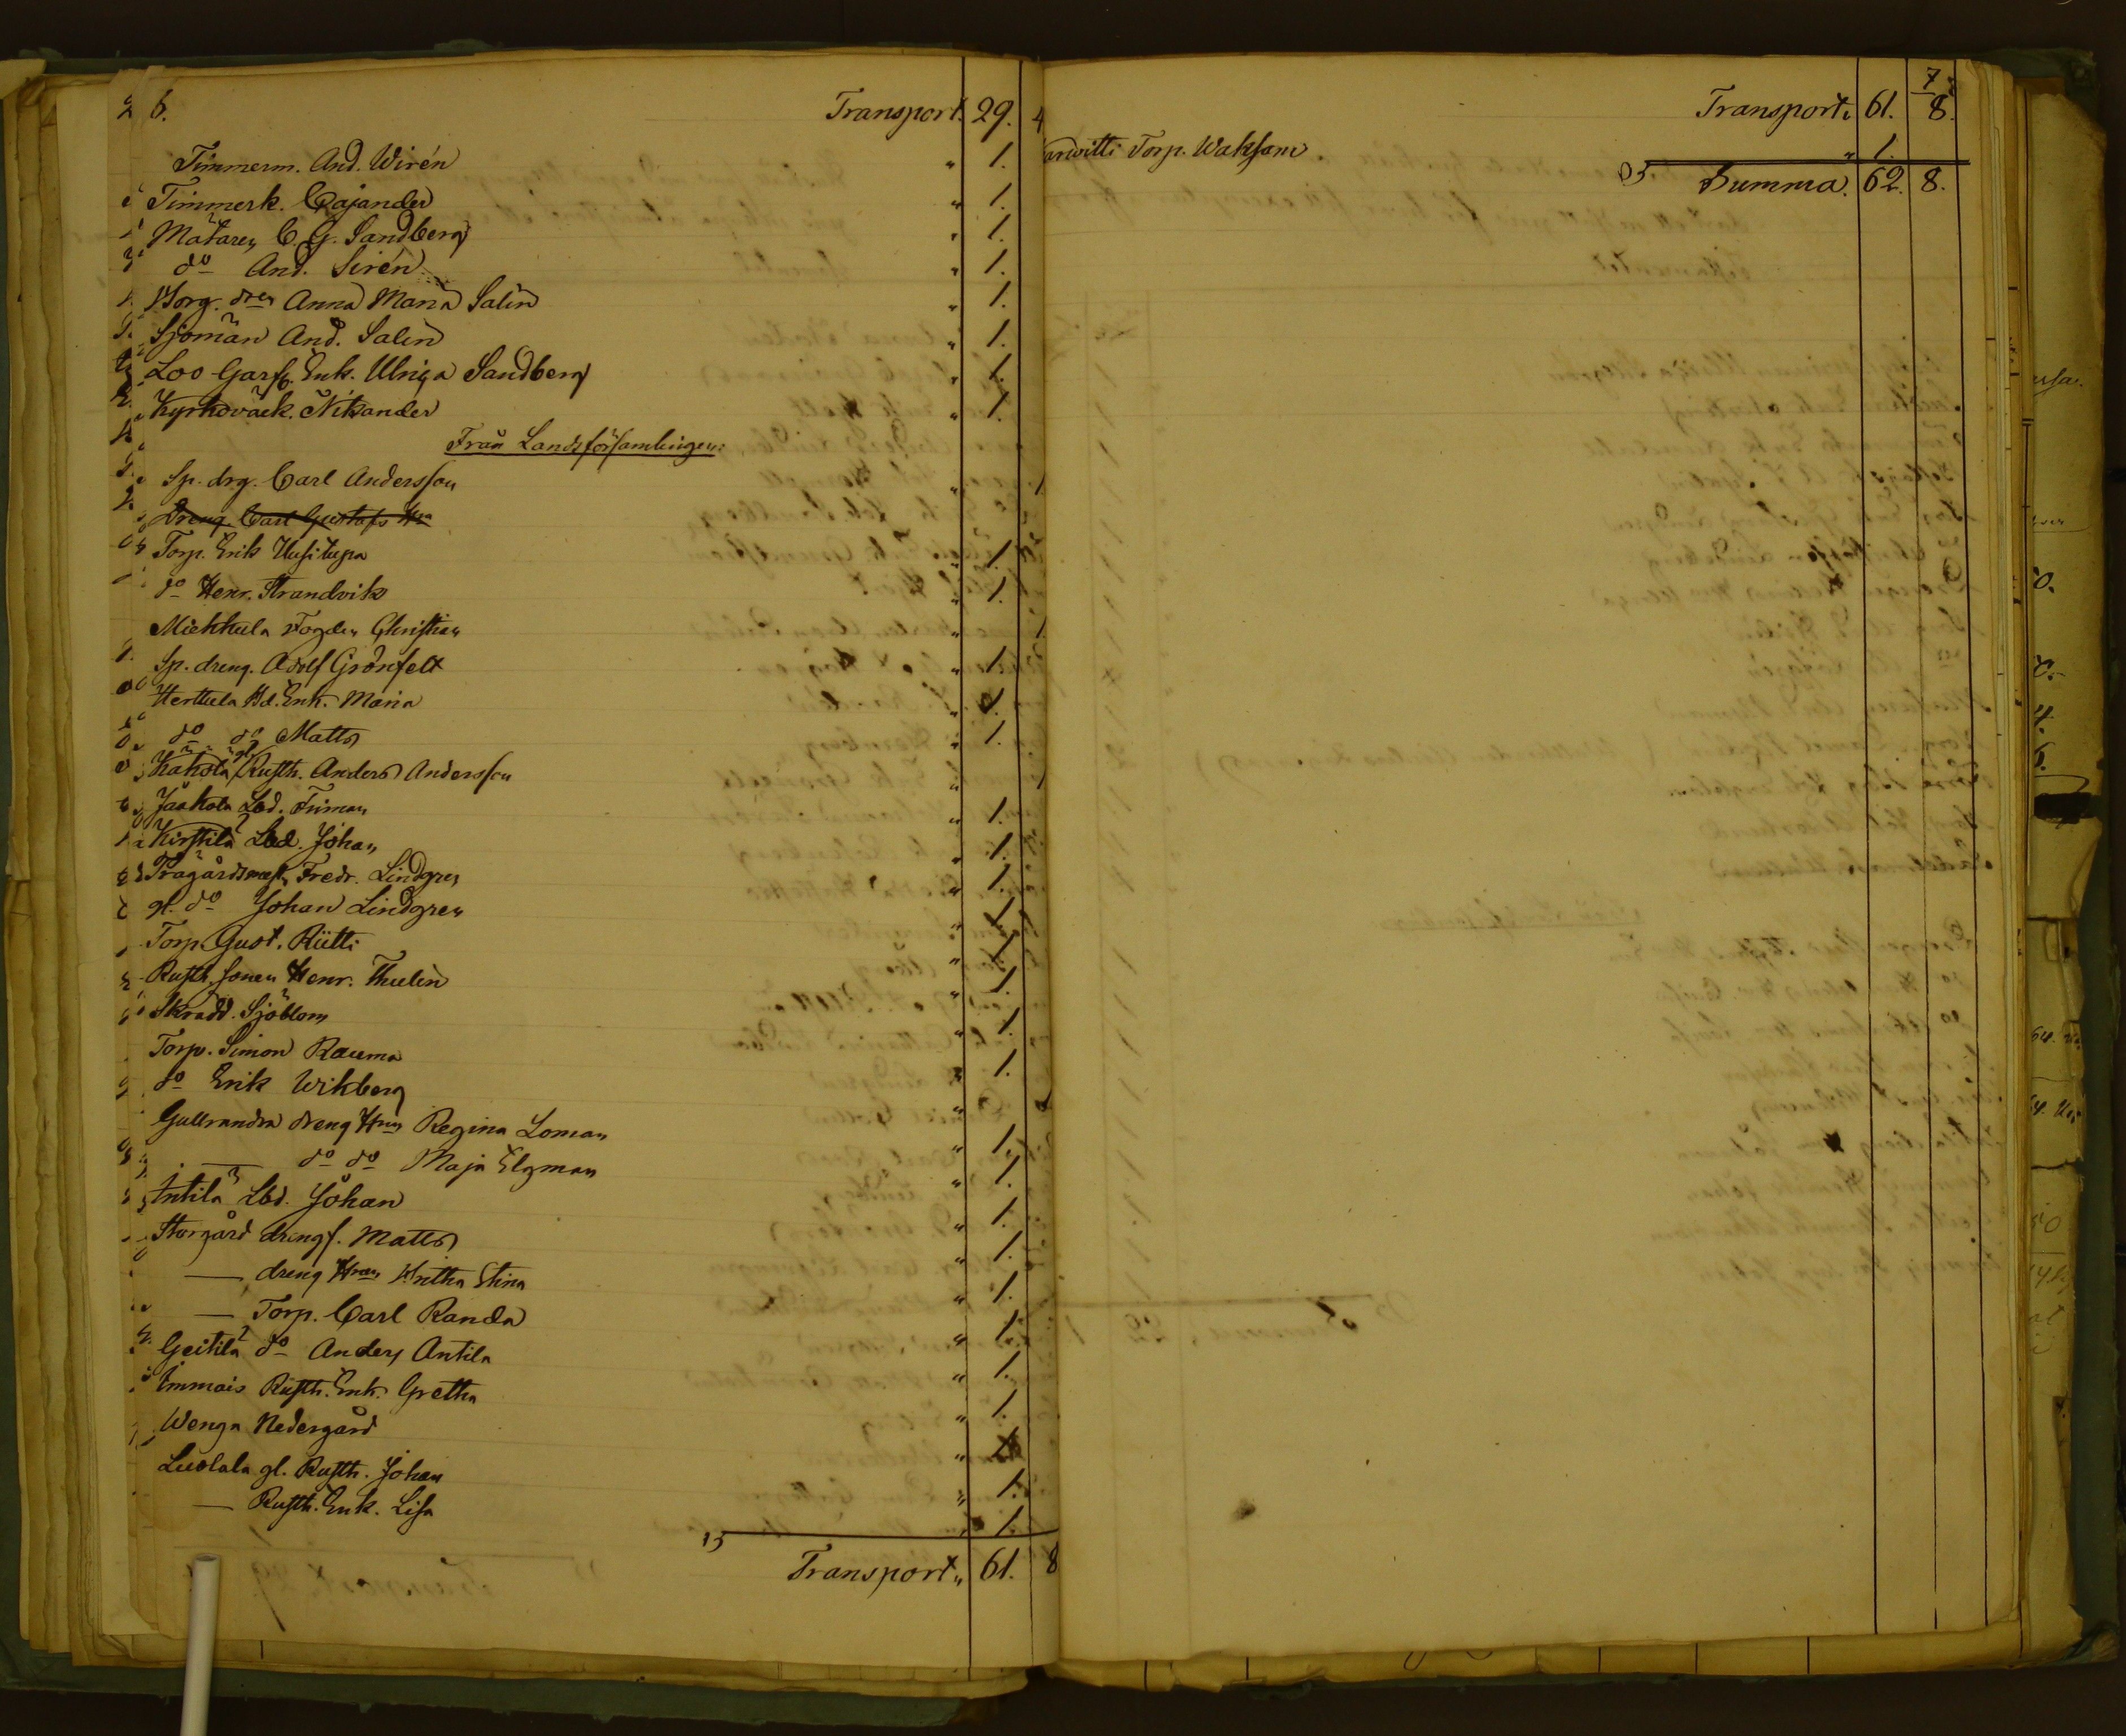 6. Transport. 29. 4
Timmerm. And. Wirén " 1.
Timmerk. Cajander " 1.
Mätaren C. G. Sandberg " 1.
do And. Sirén " 1.
Borg. drn Anna Maria Salin " 1.
Sjöman And. Salin " 1.
Loo Garfv. Enk. Ulriga Sandberg " 1.
Kyrkoväck. Nikander " 1.
Från Landsförsamlingen:
Sp. drg. Carl Andersson " 1
Dreng. Carl Gustafs Hru
Torp. Erik Uusitupa " 1.
do Henr. Strandvik " 1.
Miekkula Fogden Christian "
Sp. dreng. Adolf Grönfelt " 1.
Herttula Bd. Enk. Maria " 1.
do do Matts " 1.
Käkölä gl. Rusth. Anders Andersson "
Jaakola Lbd. Friman " 1.
Kirstilä Lbd. Johan " 1.
Trägårdsmest. Fredr. Lindgren " 1.
gl. do Johan Lindgren " 1.
Torp. Gust. Riitti " 1.
Rusth. sonen Henr. Thulin " 1.
Skrädd. Sjöblom " 1.
Torp. Simon Rauma " 1.
do Erik Wikberg "
Gullranda dreng Hrun Regina Loman " 1.
— do do Maja Elgman " 1.
Antila Lbd. Johan " 1.
Storgård drengf. Matts " 1.
— dreng Hrun Stina " 1.
— Torp. Carl Randa " 1.
Geitilä do Anders Antila " 1.
Immais Rusth. Enk. Gretha " 1.
Wenga Nedergård "
Luolala gl. Rusth. Johan " 1.
— Rusth. Enk. Lisa " 1.
Transport " 61. 8
7
Transport " 61. 8.
arwitti Torp. Waksam " 1.
Summa. 62. 8.